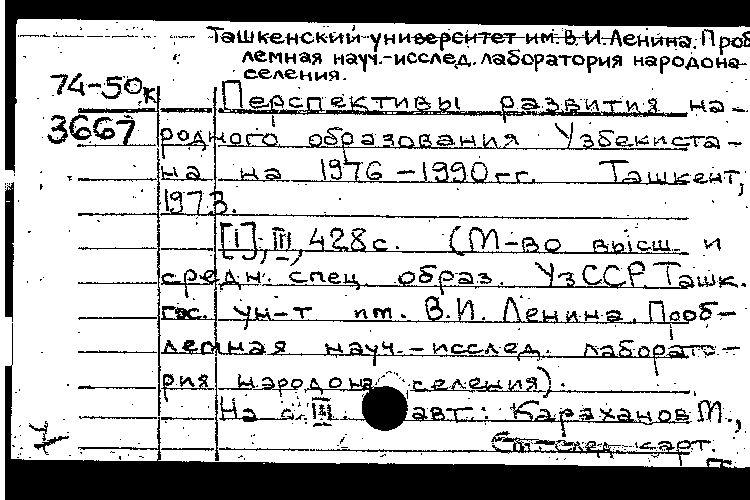 Ташкенский университет им. В.И. Ленина. Проб
лемная науч.-исслед. лаборатория народона-
селения.
74-50к
3667
Перспективы развития на-
родного образования Узбекиста-
на на 1976-1990 гг. Ташкент,
1973.
[I], III, 428 с. (М-во высш. и
средн. спец. образ. УзССР. Ташк.
гос. ун-т им. В.И. Ленина. Проб-
лемная науч.-исслед. лаборато-
рия народонаселения).
На с. III авт.: Караханов М.,
См. след. карт.